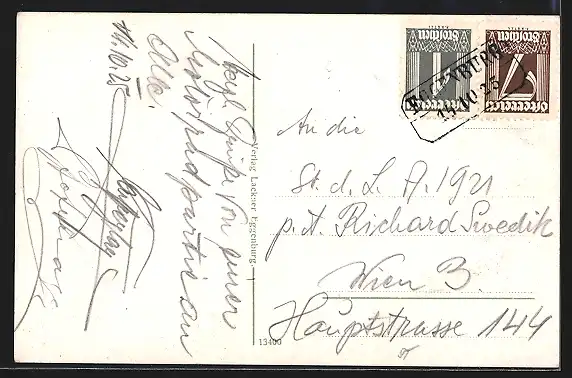 An die
St. d. L. A. 1921
p. A. Richard Swedik
Wien 3.
Hauptstrasse 144
von einer
Motorradpartie an
Alle.
14.10.25
Verlag Lackner Eggenburg
13400
EGGENBURG
14.10.25
Österreich
1
Groschen
Österreich
7
Groschen